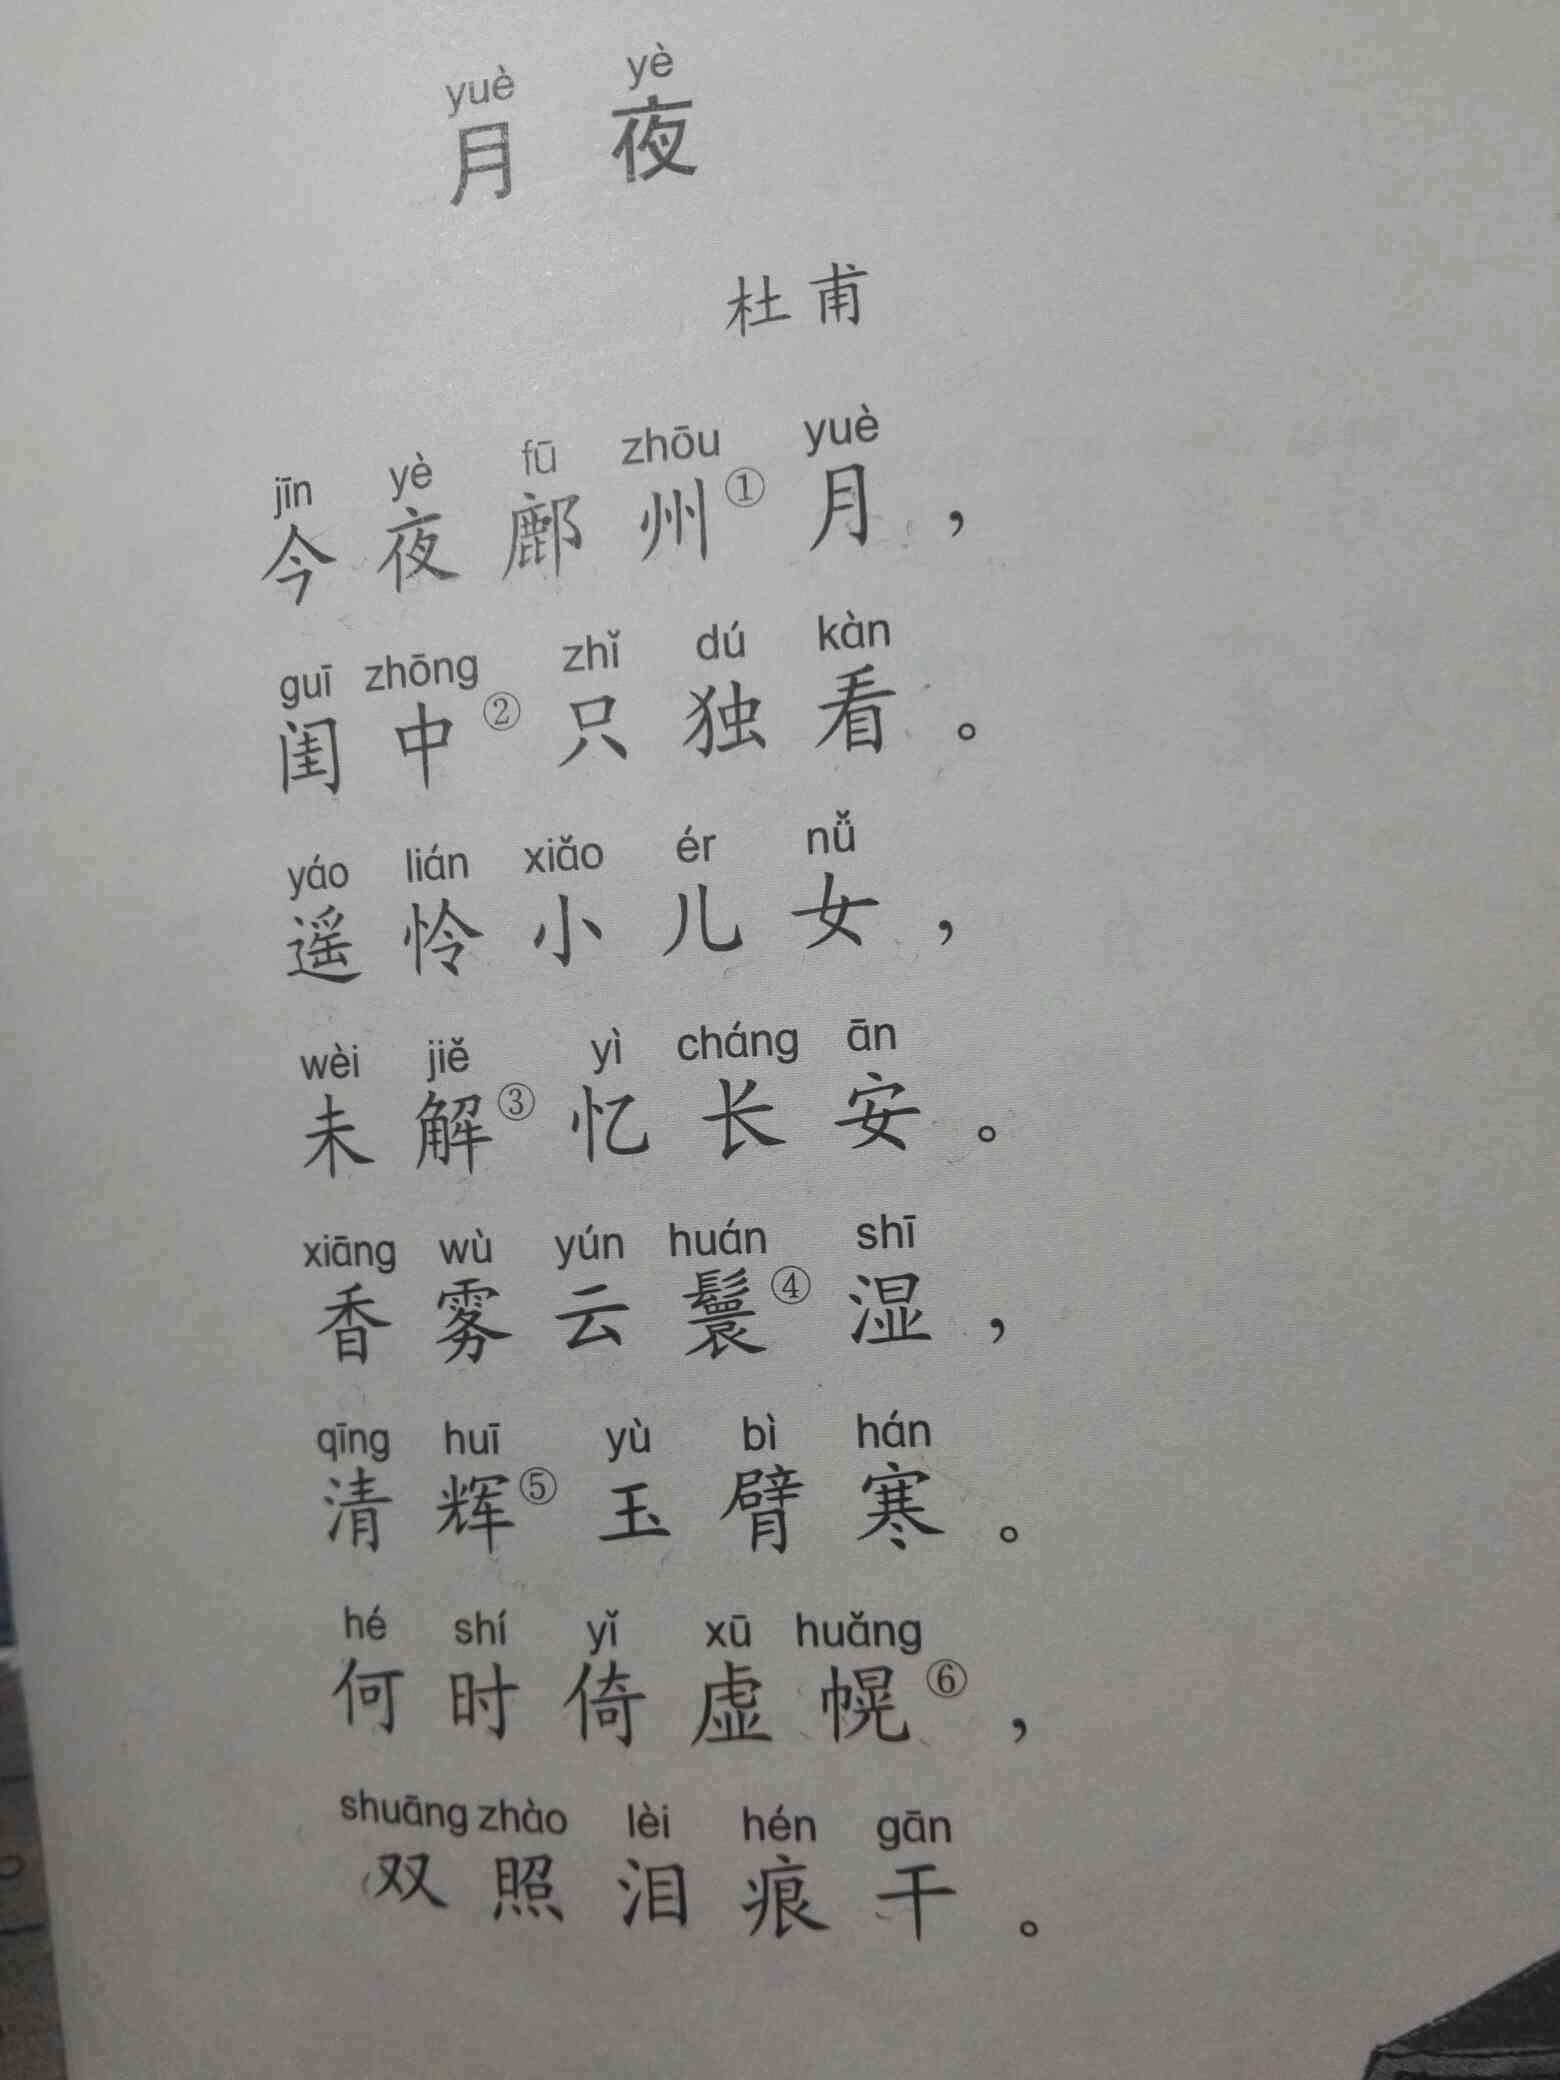 yuè yè
月 夜
杜 甫
jīn yè fū zhōu yuè
今 夜 鄜 州① 月 ，
guī zhōng zhǐ dú kàn
闺 中② 只 独 看 。
yáo lián xiǎo ér nǚ
遥 怜 小 儿 女 ，
wèi jiě yì cháng ān
未 解③ 忆 长 安 。
xiāng wù yún huán shī
香 雾 云 鬟④ 湿 ，
qīng huī yù bì hán
清 辉⑤ 玉 臂 寒 。
hé shí yǐ xū huǎng
何 时 倚 虚 幌⑥ ，
shuāng zhào lèi hén gān
双 照 泪 痕 干 。